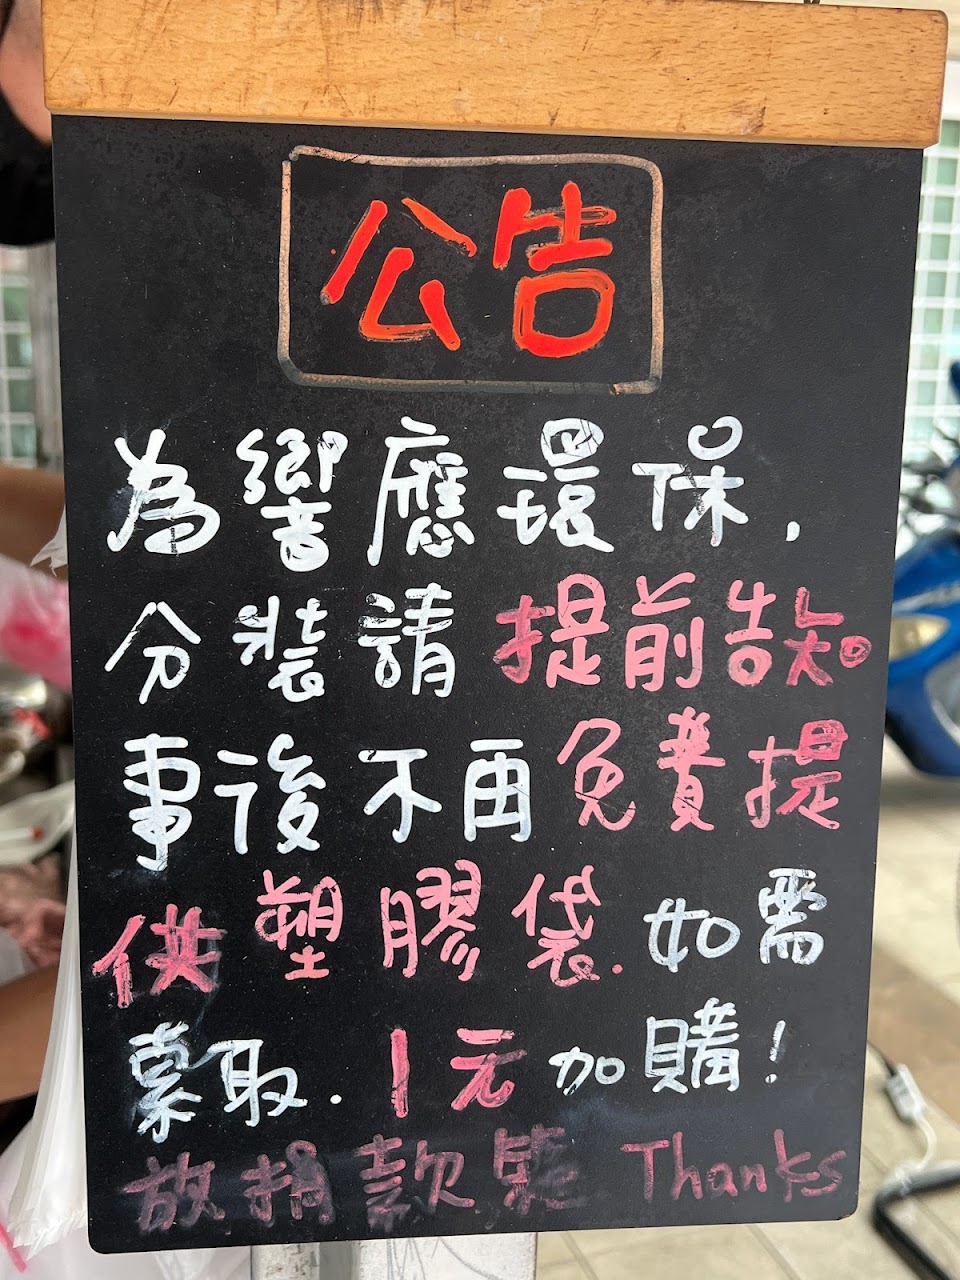 公告
為響應環保,
分裝請提前告知。
事後不再免費提
供塑膠袋.如需
索取.1元加購!
放捐款箱 Thanks